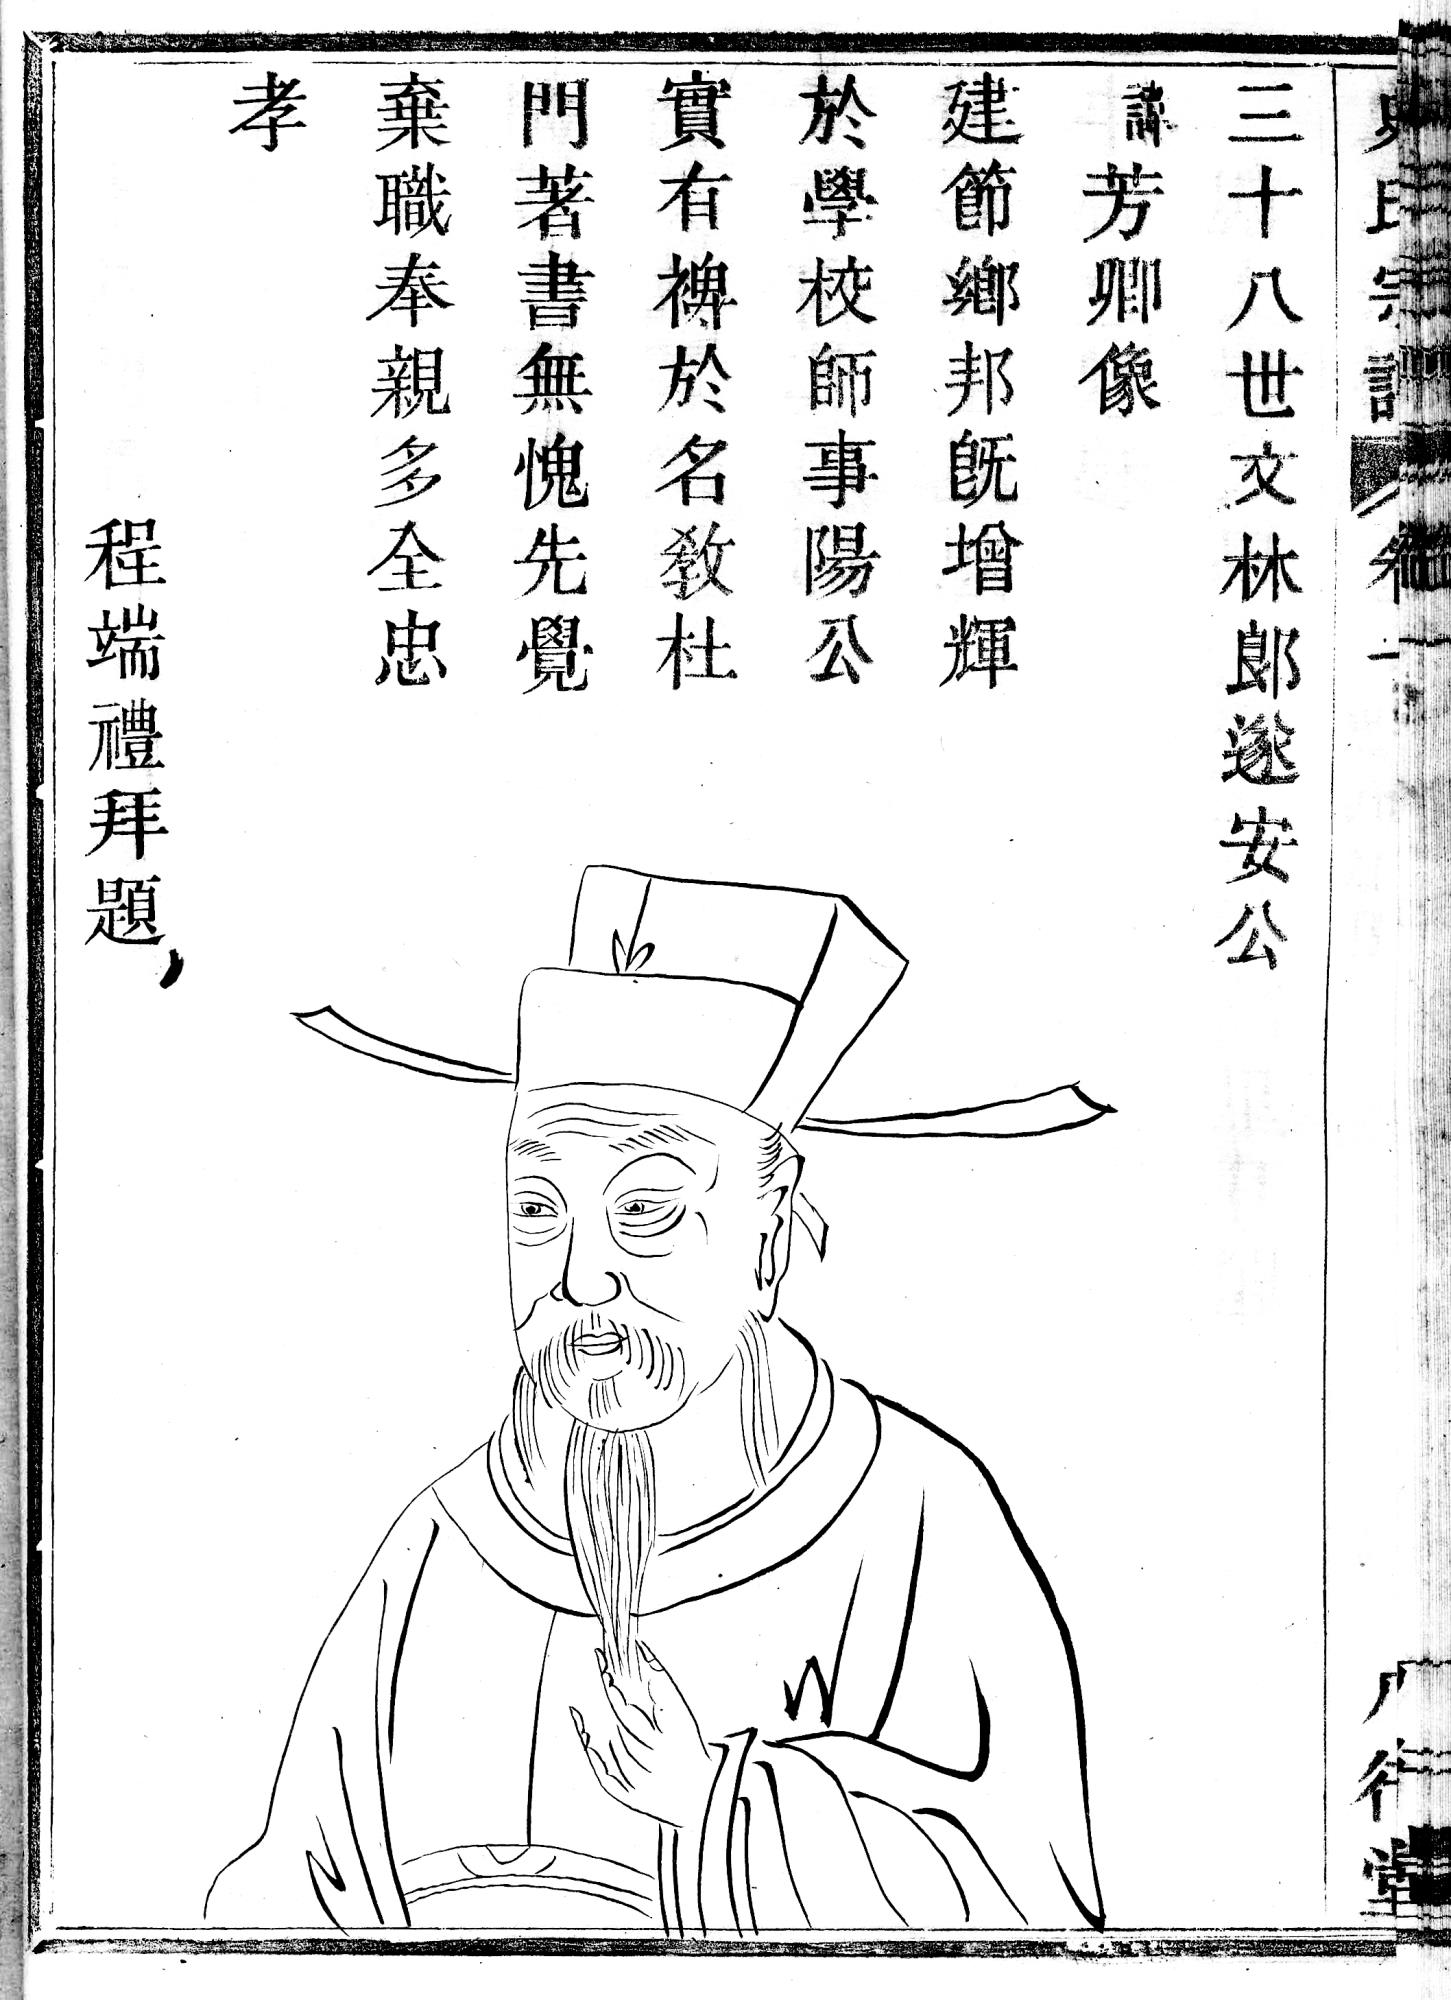 三十八世文林郎遂安公
諱芳卿像
建節鄉邦旣增輝
於學校師事陽公
實有裨於名敎杜
門著書無愧先覺
棄職奉親多全忠
孝
程端禮拜題